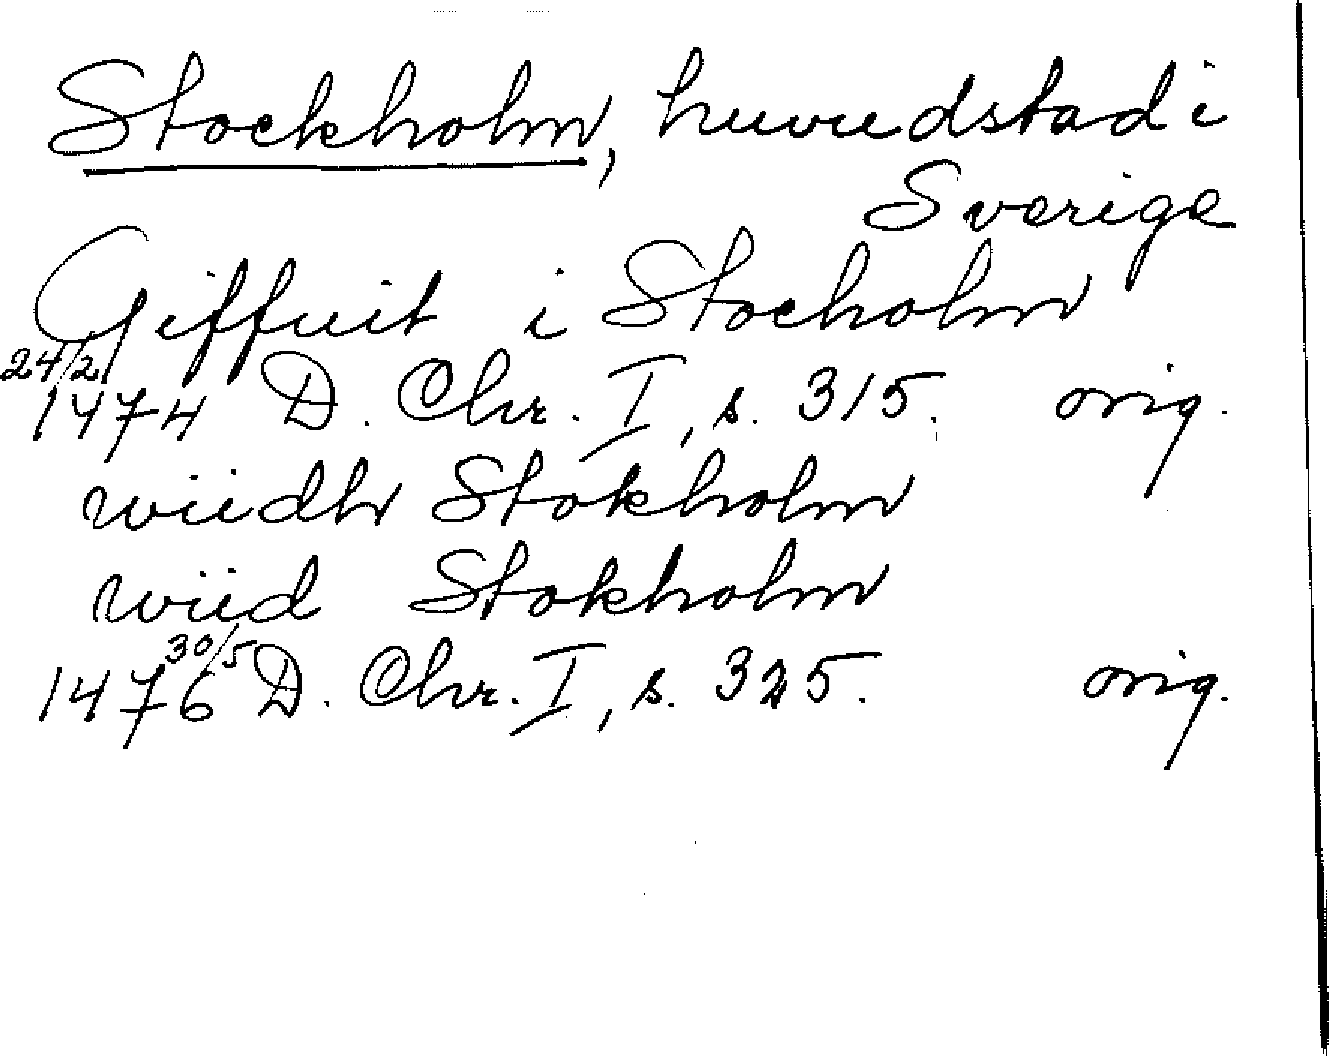 Stockholm, huvudstad i
Sverige
Giffuit i Stocholm
24/2
1474 D. Chr. I, s. 315. orig.
wiidhr Stokholm
wiid Stokholm
30/5
1476 D. Chr. I, s. 325. orig.